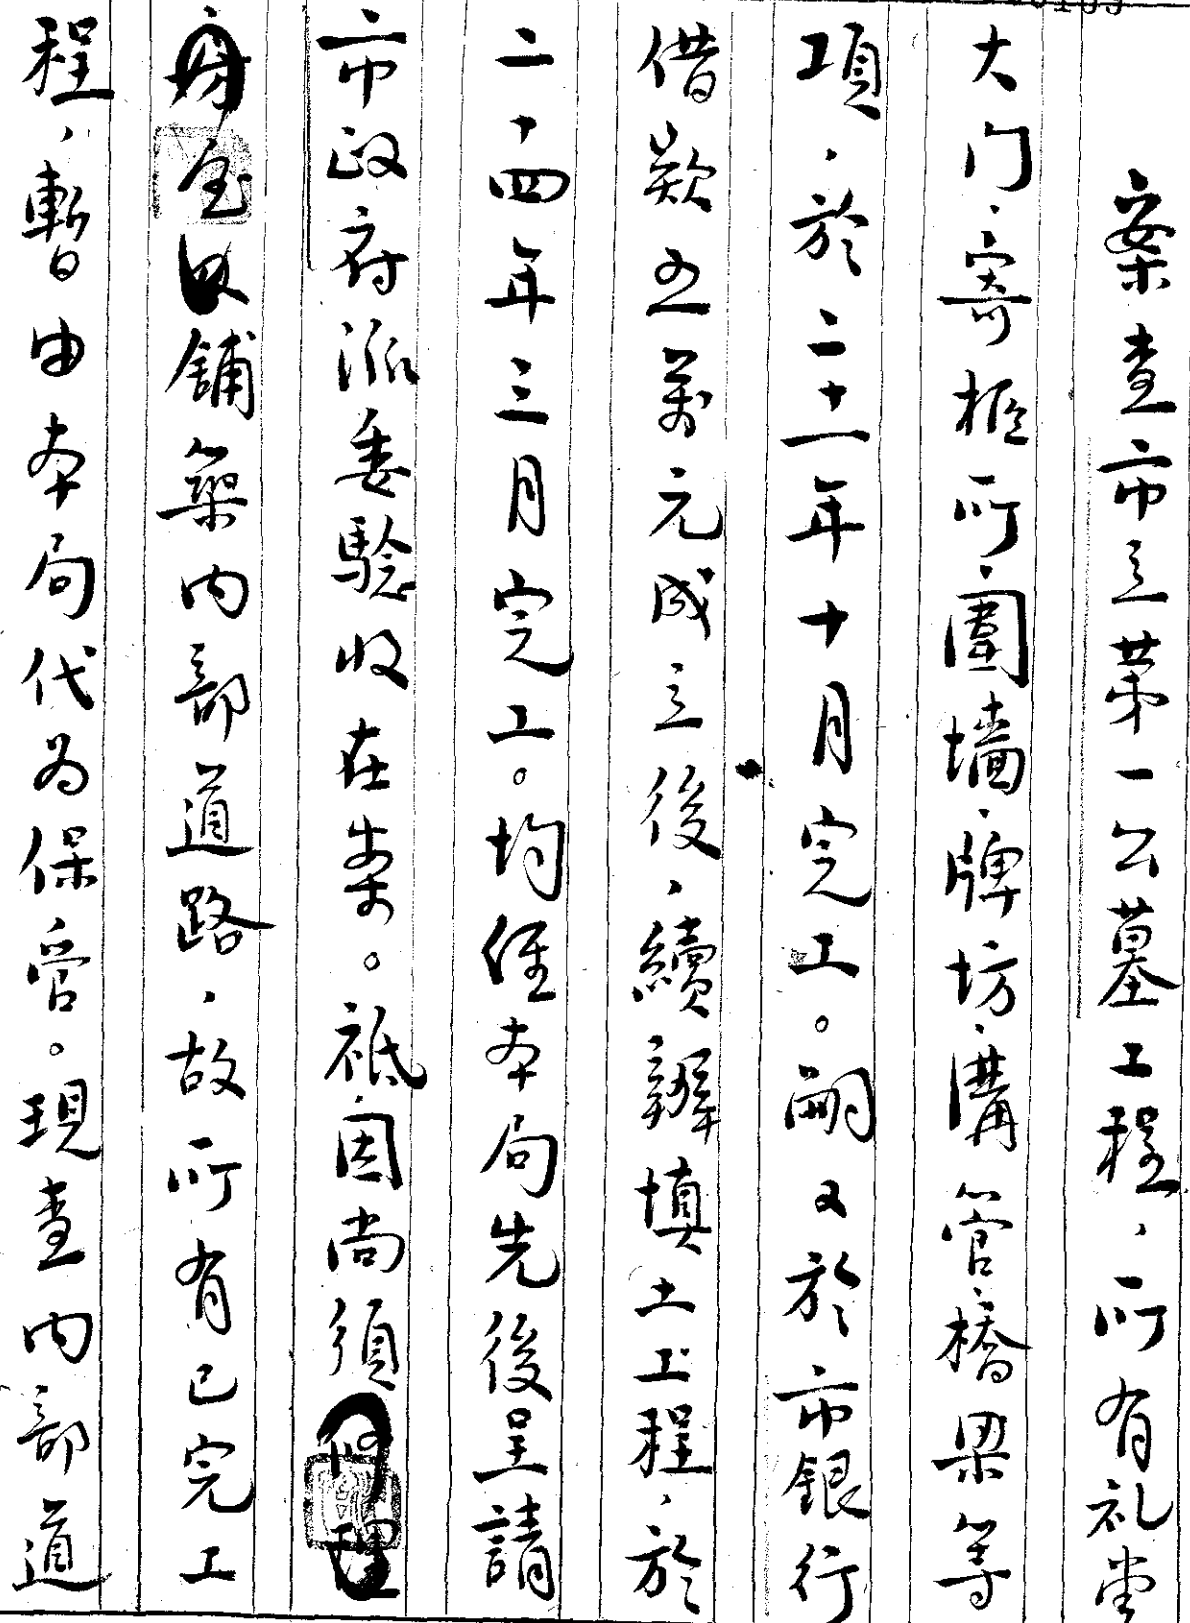 案查市立第一公墓工程，所有礼堂
大门、寄柩所、圍墻、牌坊、溝管、橋梁等
項，於二十一年十月完工。嗣又於市銀行
借款五萬元成立後，續辦填土工程，於
二十四年三月完工。均經本局先後呈請
市政府派委驗收在案。祗因尚須修理
房屋及舖築内部道路，故所有已完工
程，暫由本局代为保管。現查内部道